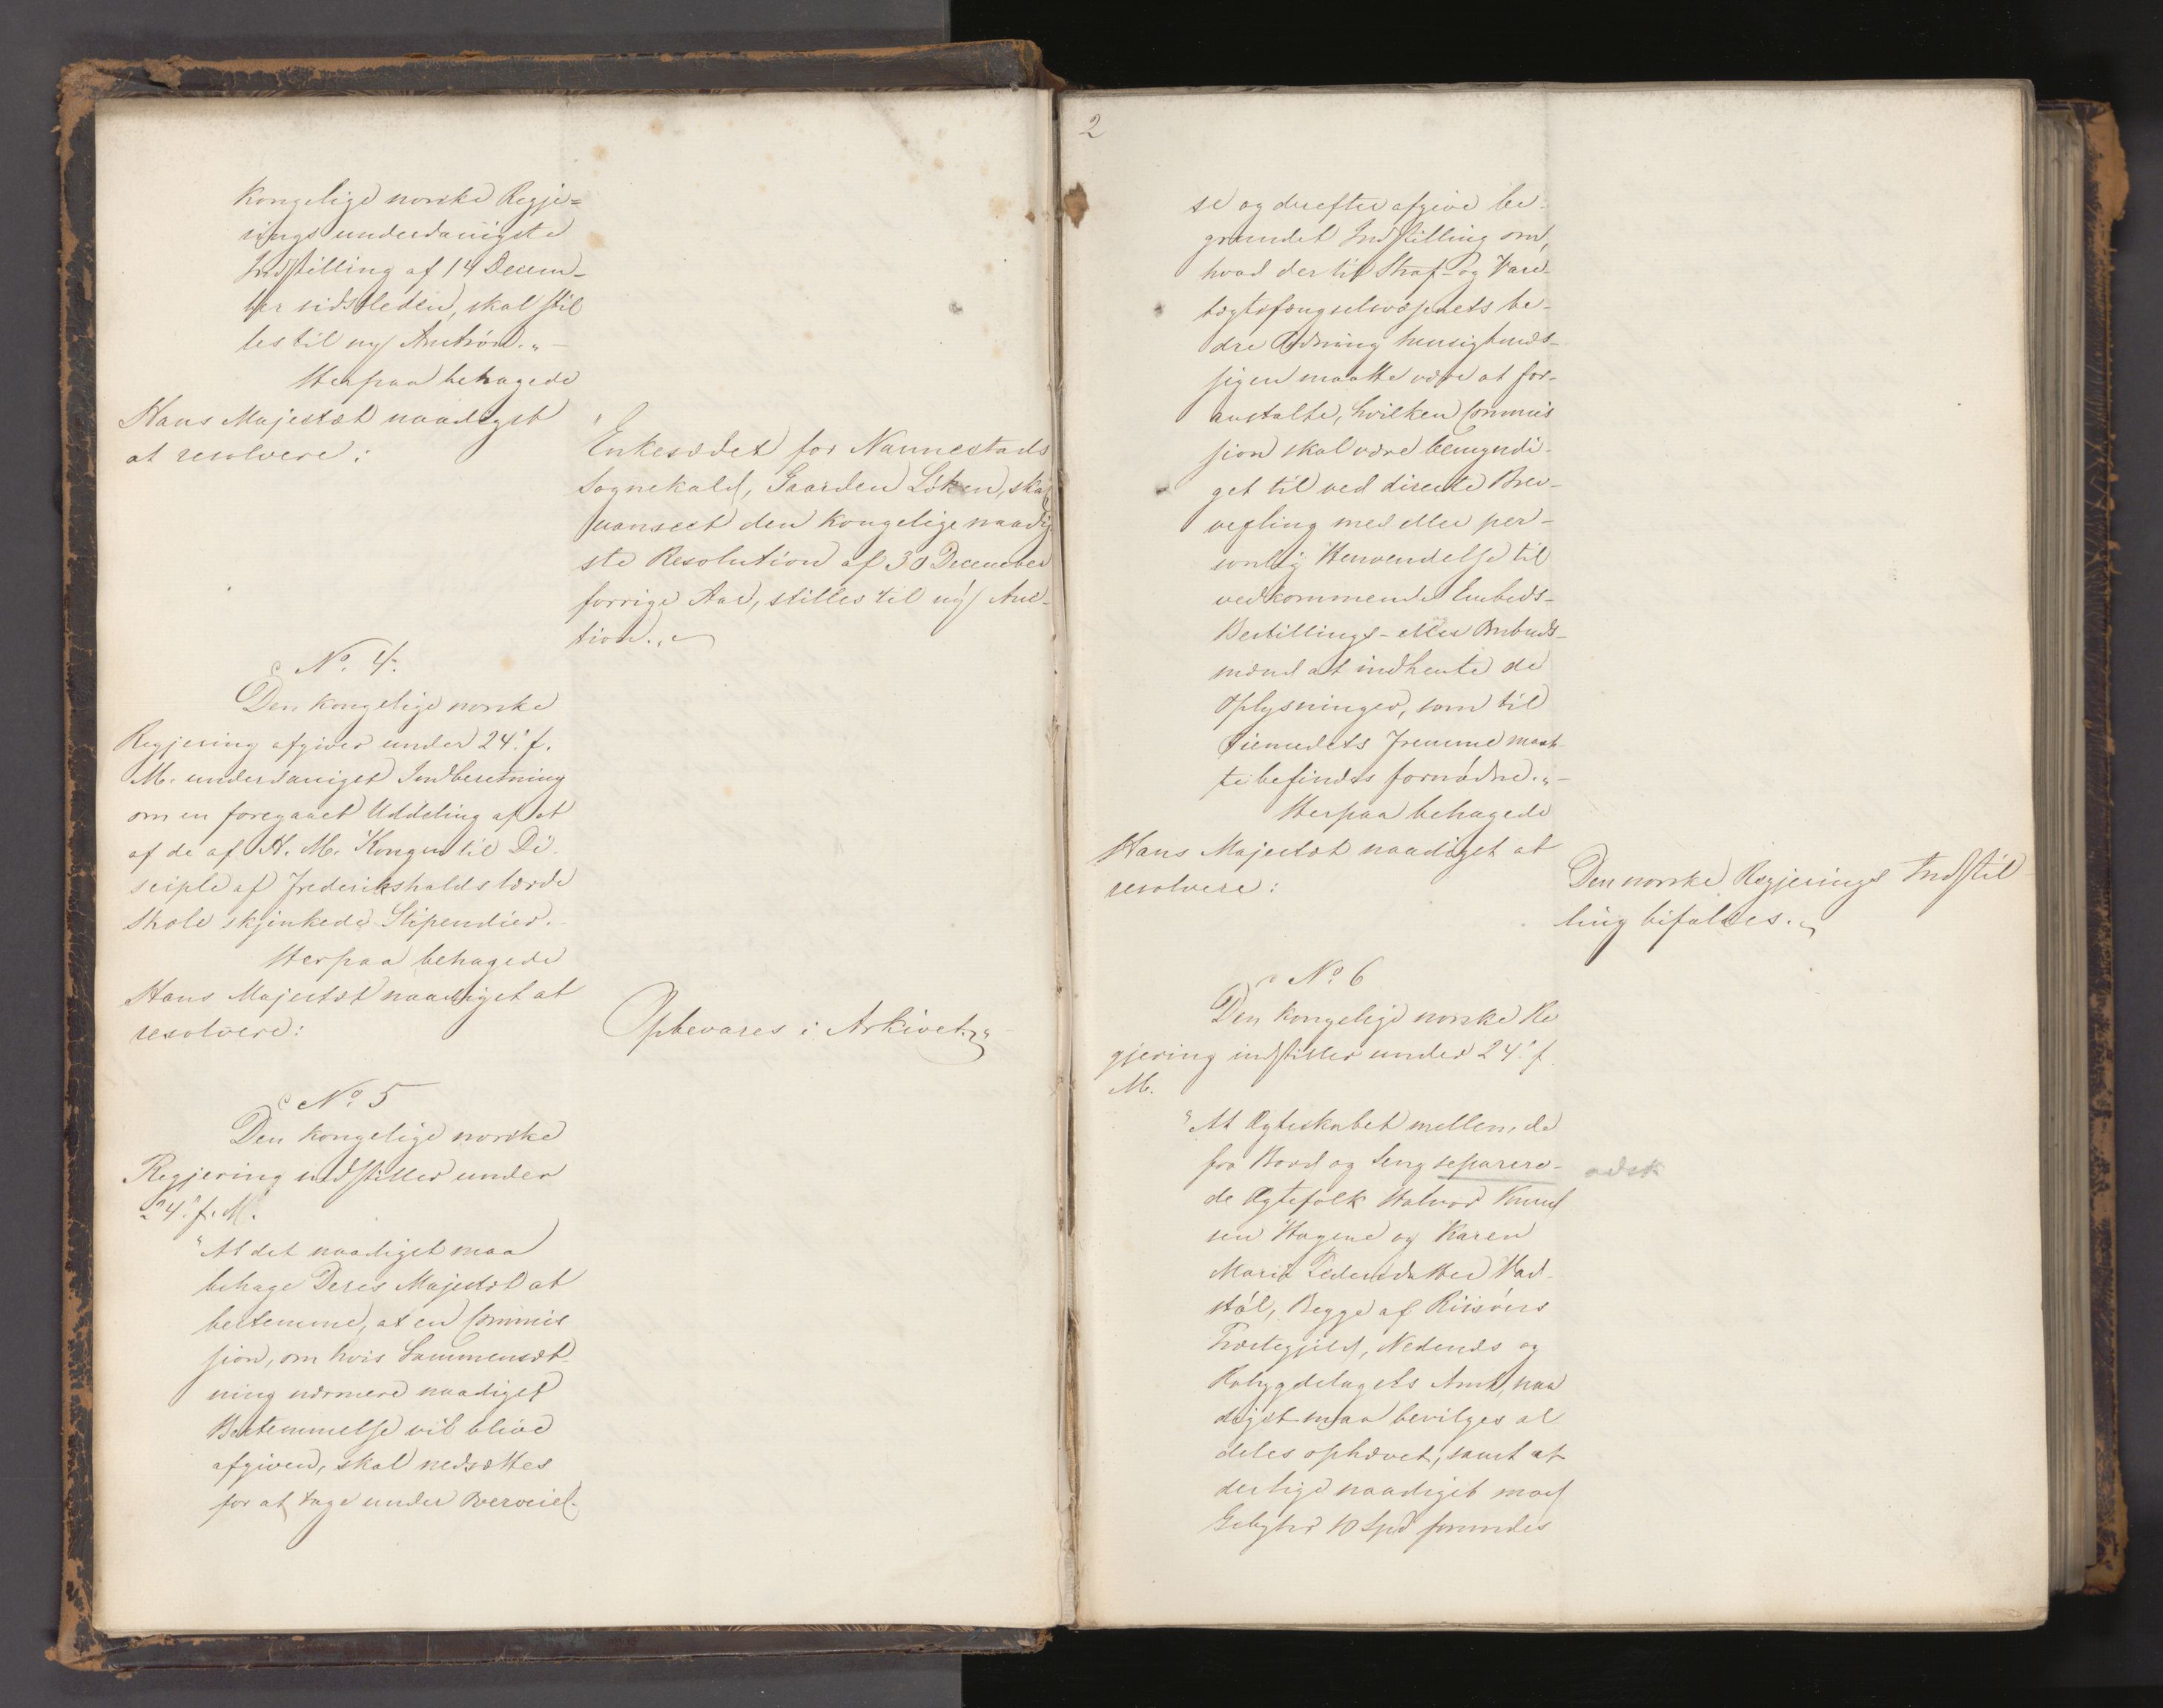 kongelige norske Regje=
rings underdanigste
Indstilling af 14 Decem-
ber sidstleden, skal stil
les til ny Auction.„ –
Herpaa behagede
Hans Majestæt naadigst
at resolvere:
"Enkesædet for Nannestads
Sognekald, Gaarden Löken, skal
uanseet den kongelige naadig
ste Resolution af 30 December
forrige Aar, stilles til ny Auc-
tion.„
No. 4.
Den kongelige norske
Regjering afgiver under 24. f.
M. underdanigst Indberetning
om en foregaaet Uddeling af et
af de af H. M. Kongen til Di-
sciple af Frederikshalds lærde
Skole skjenkede Stipendier.
Herpaa behagede
Hans Majestæt naadigst at
resolvere:
Opbevares i Arkivet.„
No. 5
Den kongelige norske
Regjering indstiller under
24. f. M.
"At det naadigst maa
behage Deres Majestæt at
bestemme, at en Commis
sion, om hvis Sammensæt-
ning nærmere naadigst
Bestemmelse vil blive
afgiven, skal nedsættes
for at tage under Overveiel-
2
se og derefter afgive be-
grundet Indstilling om,
hvad der til Straf- og Vare-
tægtsfængselsvæsenets be-
dre Ordning hensigtmæs-
sigen maatte være at for-
anstalte, hvilken Commis
sion skal være bemyndi-
get til ved directe Brev-
vexling med eller per-
sonlig Henvendelse til
vedkommende Embeds-
Bestillings- eller Ombuds-
mænd at indhente de
Oplysninger, som til
Øiemedets Fremme maat-
te befindes fornödne.„ –
Herpaa behagede
Hans Majestæt naadigst at
resolvere:
Den norske Regjerings Indstil
ling bifaldes.„
No. 6
Den kongelige norske Re
gjering indstiller under 24. f.
M.
"At Ægteskabet mellem de
fra Bord og Seng separere-
adsk
de Ægtefolk Halvor Knud
sen Hagene og Karen
Maria Pedersdatter Vad-
stöl, Begge af Riisöers
Præstegjeld, Nedenæs og
Robygdelagets Amt, naa
digst maa bevilges al
deles ophævet, samt at
derhos naadigst mod
Gebyhr 10 Spd forundes